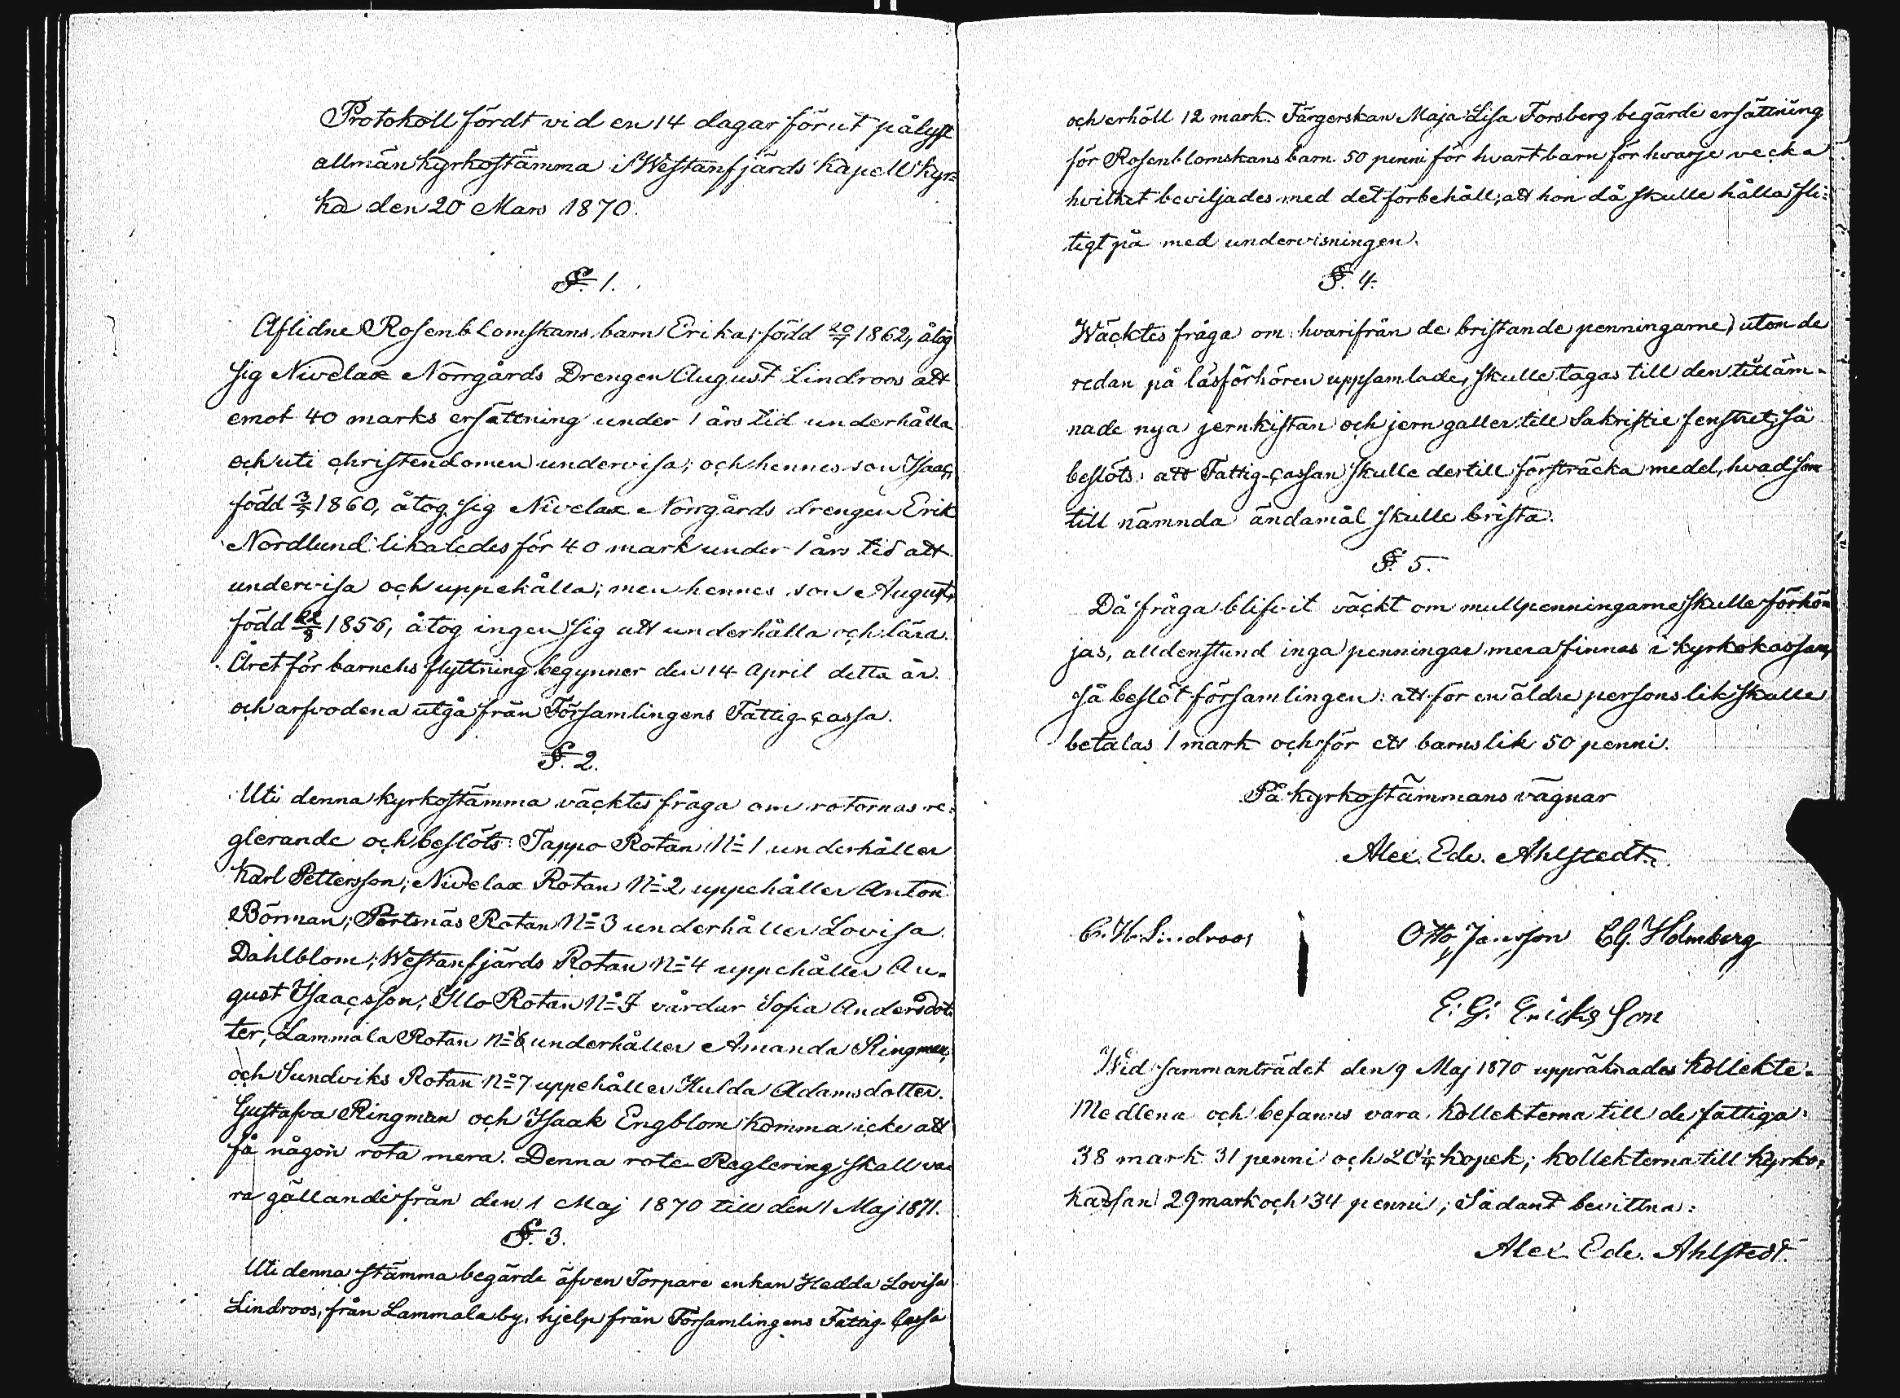 Protokoll fördt vid en 14 dagar förut pålyst
allmän kyrkostämma i Westanfjärds kapell kyr=
ka den 20 Mars 1870.
§. 1.
Aflidne Rosenblomskans barn Erika, född 20/7 1862, åtog
sig Nivelax Norrgårds Drengen August Lindroos att
emot 40 marks ersättning under 1 års tid underhålla
och uti christendomen undervisa; och hennes son Isaac,
född 3/5 1860, åtog sig Nivelax Norrgårds drengen Erik
Nordlund likaledes för 40 mark under 1 års tid att
undervisa och uppehålla; men hennes son August,
född 22/8 1856, åtog ingen sig att underhålla och lära.
Året för barnens flyttning begynner den 14 April detta år
och arfvodena utgå från Församlingens Fattig-cassa.
§. 2.
Uti denna kyrkostämma väcktes fråga om rotornas re=
glerande och beslöts: Tappo Rotan No 1 underhåller
Karl Pettersson; Nivelax Rotan No 2 uppehåller Anton
Börman; Pörtnäs Rotan No 3 underhåller Lovisa
Dahlblom; Westanfjärds Rotan No 4 uppehåller Au=
gust Isaacsson; Illo Rotan No 5 vårdar Sofia Andersdot
ter; Lammala Rotan No 6 underhåller Amanda Ringman
och Sundviks Rotan No 7 uppehåller Hulda Adamsdotter.
Gustafva Ringman och Isaak Engblom komma icke att
få någon rota mera. Denna rote-Reglering skall va=
ra gällande från den 1 Maj 1870 till den 1 Maj 1871.
§. 3.
Uti denna stämma begärde äfven Torpare enkan Hedda Lovisa
Lindroos, från Lammala by, hjelp från Församlingens Fattig-Cassa
och erhöll 12 mark. Färgerskan Maja Lisa Forsberg begärde ersättning
för Rosenblomskans barn 50 penni för hvart barn för hvarje vecka
hvilket beviljades med det förbehåll, att hon då skulle hålla fli=
tigt på med undervisningen.
§. 4.
Wäcktes fråga om hvarifrån de bristande penningarne, utom de
redan på läsförhören uppsamlade, skulle tagas till den tilläm=
nade nya jernkistan och jern galler till Sakristie fenstret; så
beslöts: att Fattig-cassan skulle dertill försträcka medel, hvad som
till nämnda ändamål skulle brista.
§. 5.
Då fråga blifvit väckt om mullpenningarne skulle förhö=
jas, alldenstund inga penningar mera finnas i kyrkokassan,
så beslöt församlingen: att för en äldre persons lik skulle
betalas 1 mark och för ett barns lik 50 penni.
På kyrkostämmans vägnar
Alex. Edv. Ahlstedt.
C. W. Lindroos Otto Jansson C G. Holmberg
E. G. Ericks Son
Wid sammanträdet den 9 Maj 1870 uppräknades Kollekte=
Medlena och befanns vara kollekterna till de fattiga
38 mark 31 penni och 20 1/4 kopek; kollekterna till kyrko=
kassan 29 mark och 34 penni; Sådant bevittna:
Alex. Edv. Ahlstedt.